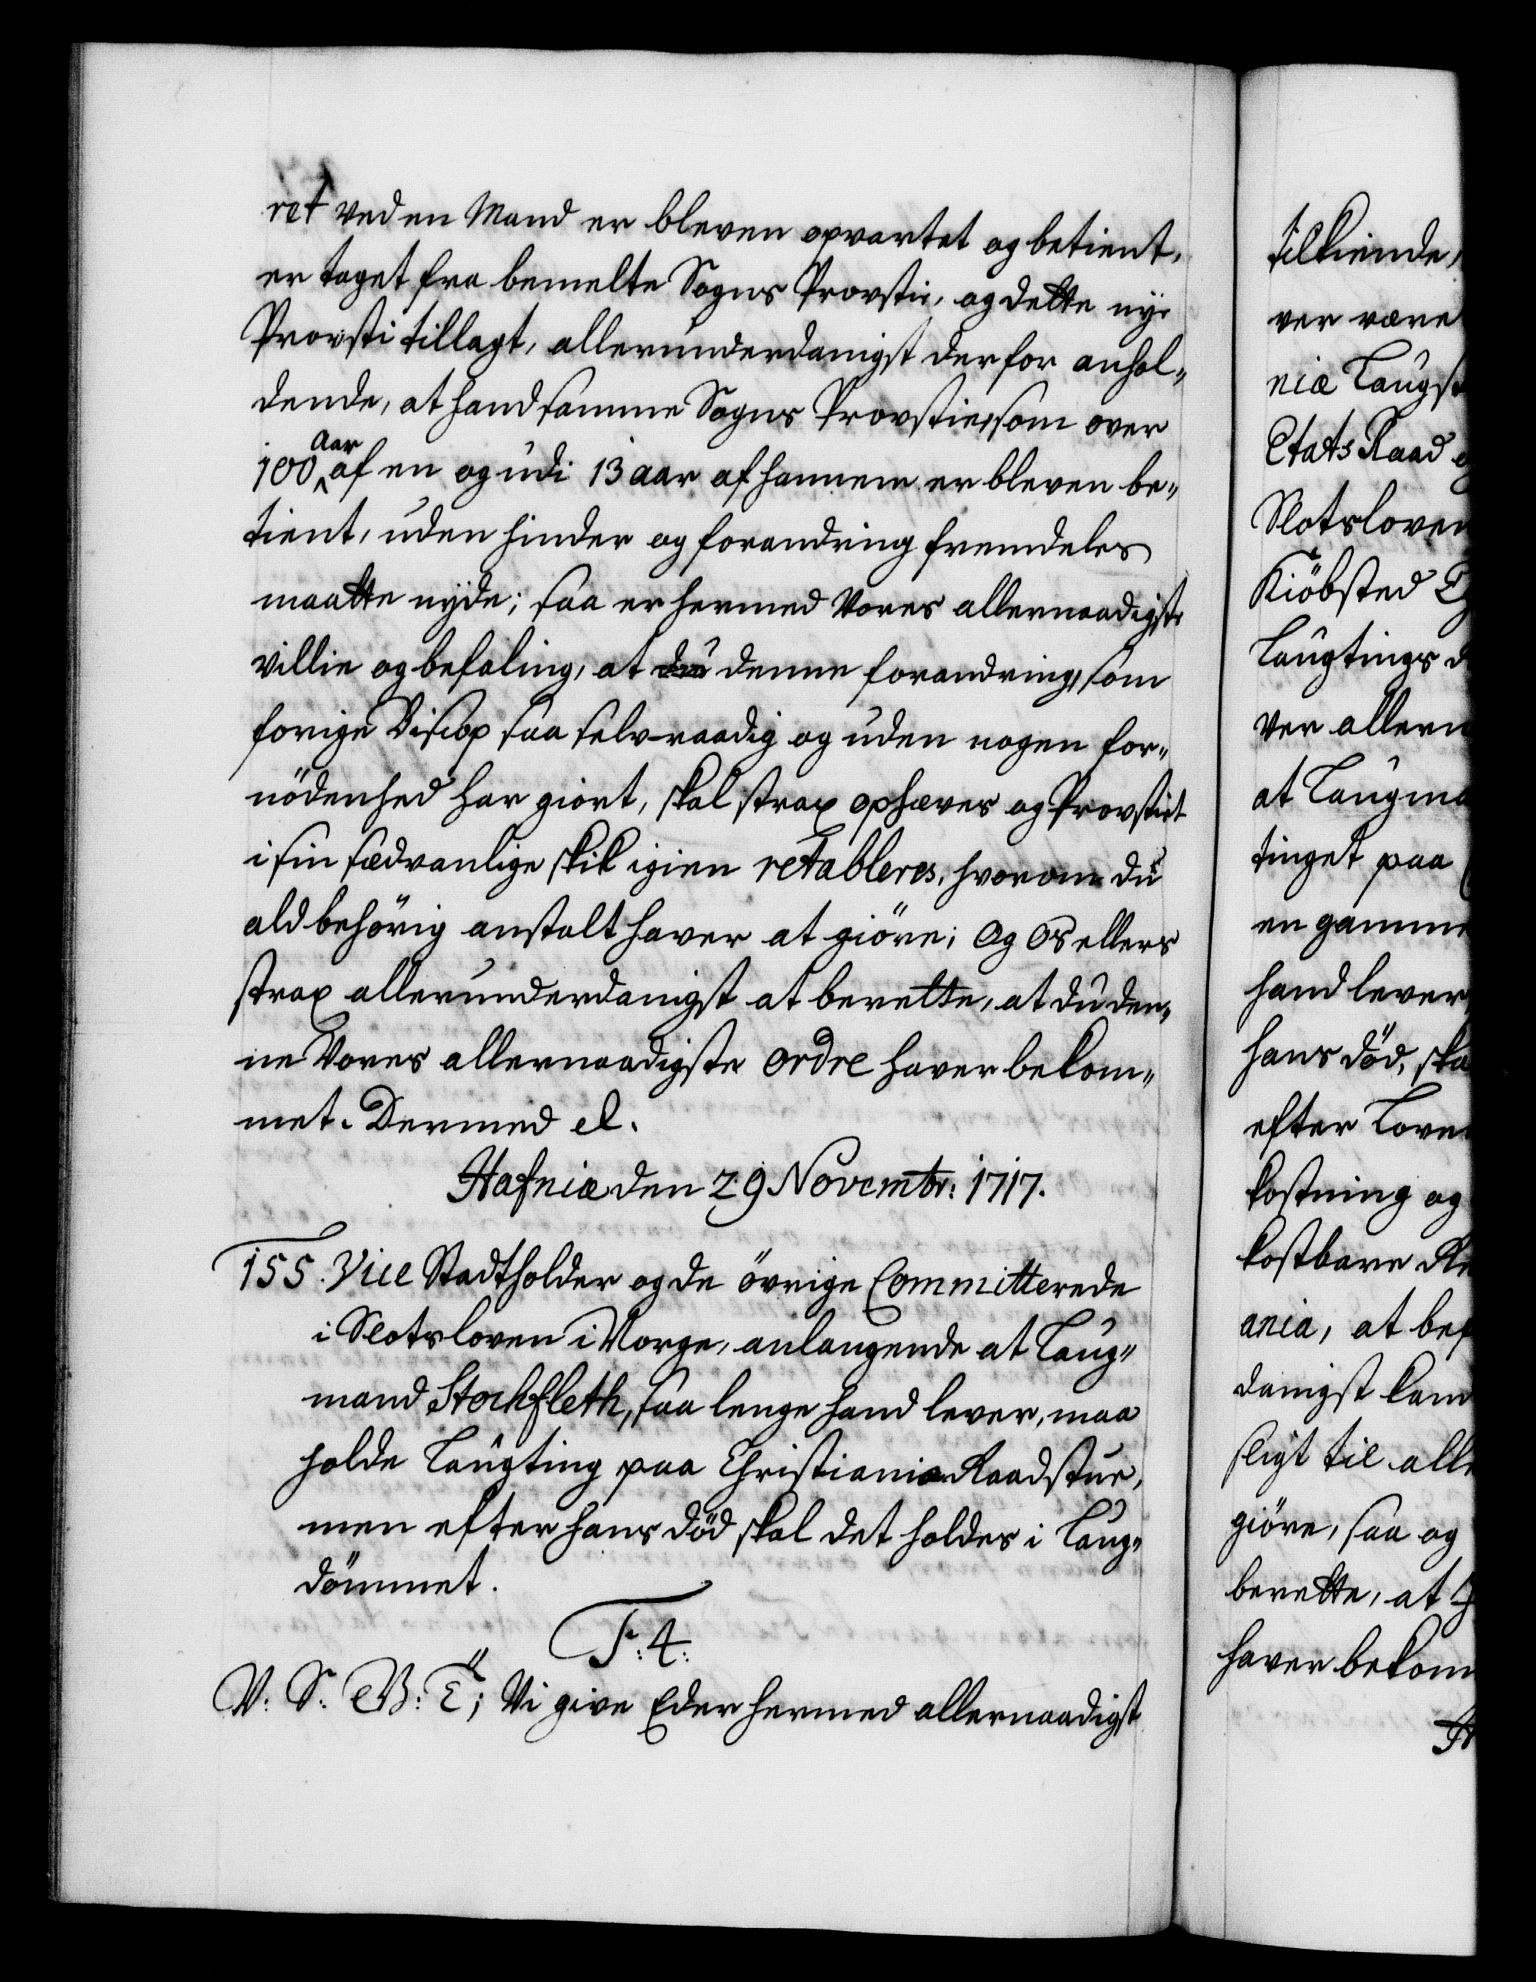 ret ved en Mand er bleven opvartet og betient,
er taget fra bemelte Sogns Provstie, og dette nye
Provsti tillagt, allerunderdanigst derfor anhol-
dende, at hand samme Sogns Provstie, som over
100 Aar af en og udi 13 aar af hannem er bleven be-
tient, uden hinder og forandring fremdeles
maatte nyde; saa er hermed Vores allernaadigste
villie og befaling, at du denne forandring, som
forige Biscop saa selv-raadig og uden nogen for-
nödenhed har giort, skal strax ophæves og Provstiet
i sin sædvanlige skik igien retableres, hvorom du
ald behörig anstalt haver at giöre; Og Os ellers
strax allerunderdanigst at berette, at du den-
ne Vores allernaadigste Ordre haver bekom-
met. Dermed el.
Hafniæ den 29 Novembr: 1717.
155. Vice Stadtholder og de övrige Committerede
i Slotsloven i Norge, anlangende at Laug-
mand Stockfleth, saa lenge hand lever, maa
holde Laugting paa Christianiæ Raadstue,
men efter hans död skal det holdes i Laug-
dömmet.
F: 4:
V: S: G: T; Vi give Eder hermed allernaadigst
tilkiende,
ver være
niæ Laugst
Etats Raad og
Slotsloven
Kiöbsted
Laugtings
ver allern
at Laugma
tinget paa
en gamme
hand lever
hans död, ska
efter Loven
kostning og
kostbare
ania, at bef
danigst kand
sligt til alle
giöre, saa og
berette, at
haver bekom